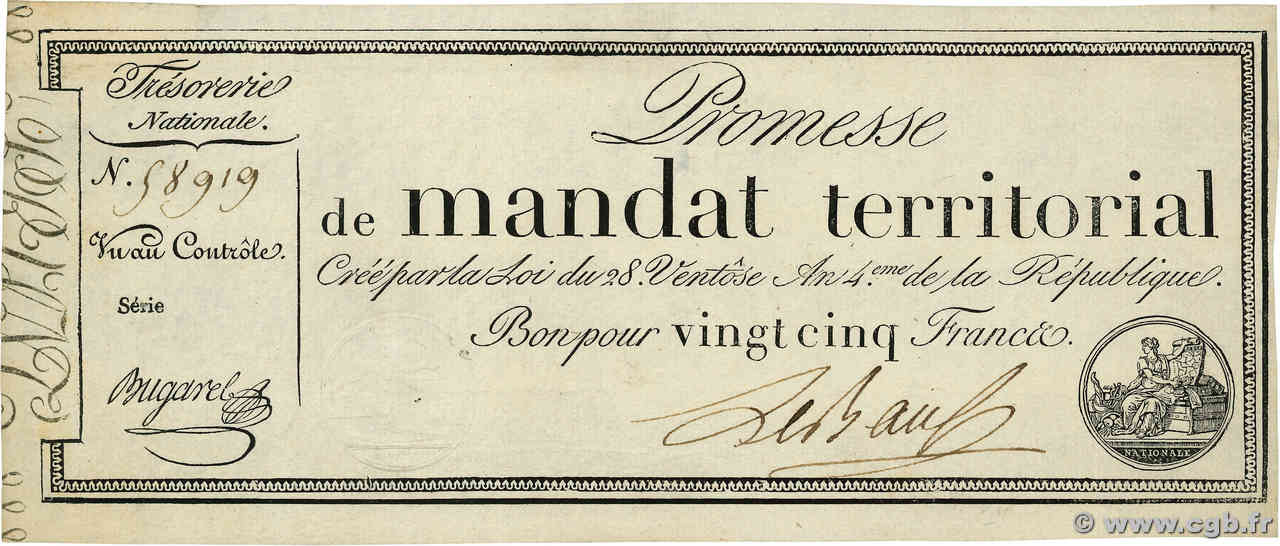 Trésorerie
Nationale.
N. 58919
Vu au Contrôle.
Série
Bugarel
Promesse
de mandat territorial
Créé par la Loi du 28. Ventôse An 4.eme de la République.
Bon pour vingt cinq Francs.
NATIONALE
© www.cgb.fr